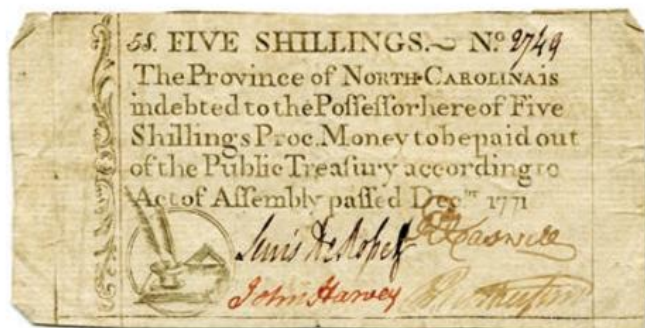 5S. FIVE SHILLINGS.~ No. 2749
The Province of NORTH-CAROLINA is
indebted to the Poſſeſſor here of Five
Shillings Proc. Money to be paid out
of the Public Treaſury according to
Act of Aſſembly paſſed Decᵐʳ 1771
Lewis De Roſſett R Caswell
John Harvey